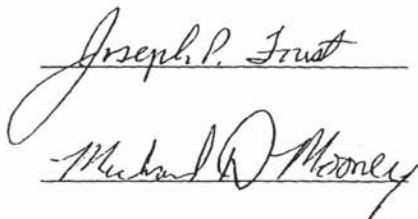 Joseph P. Foust
Michael D Mooney